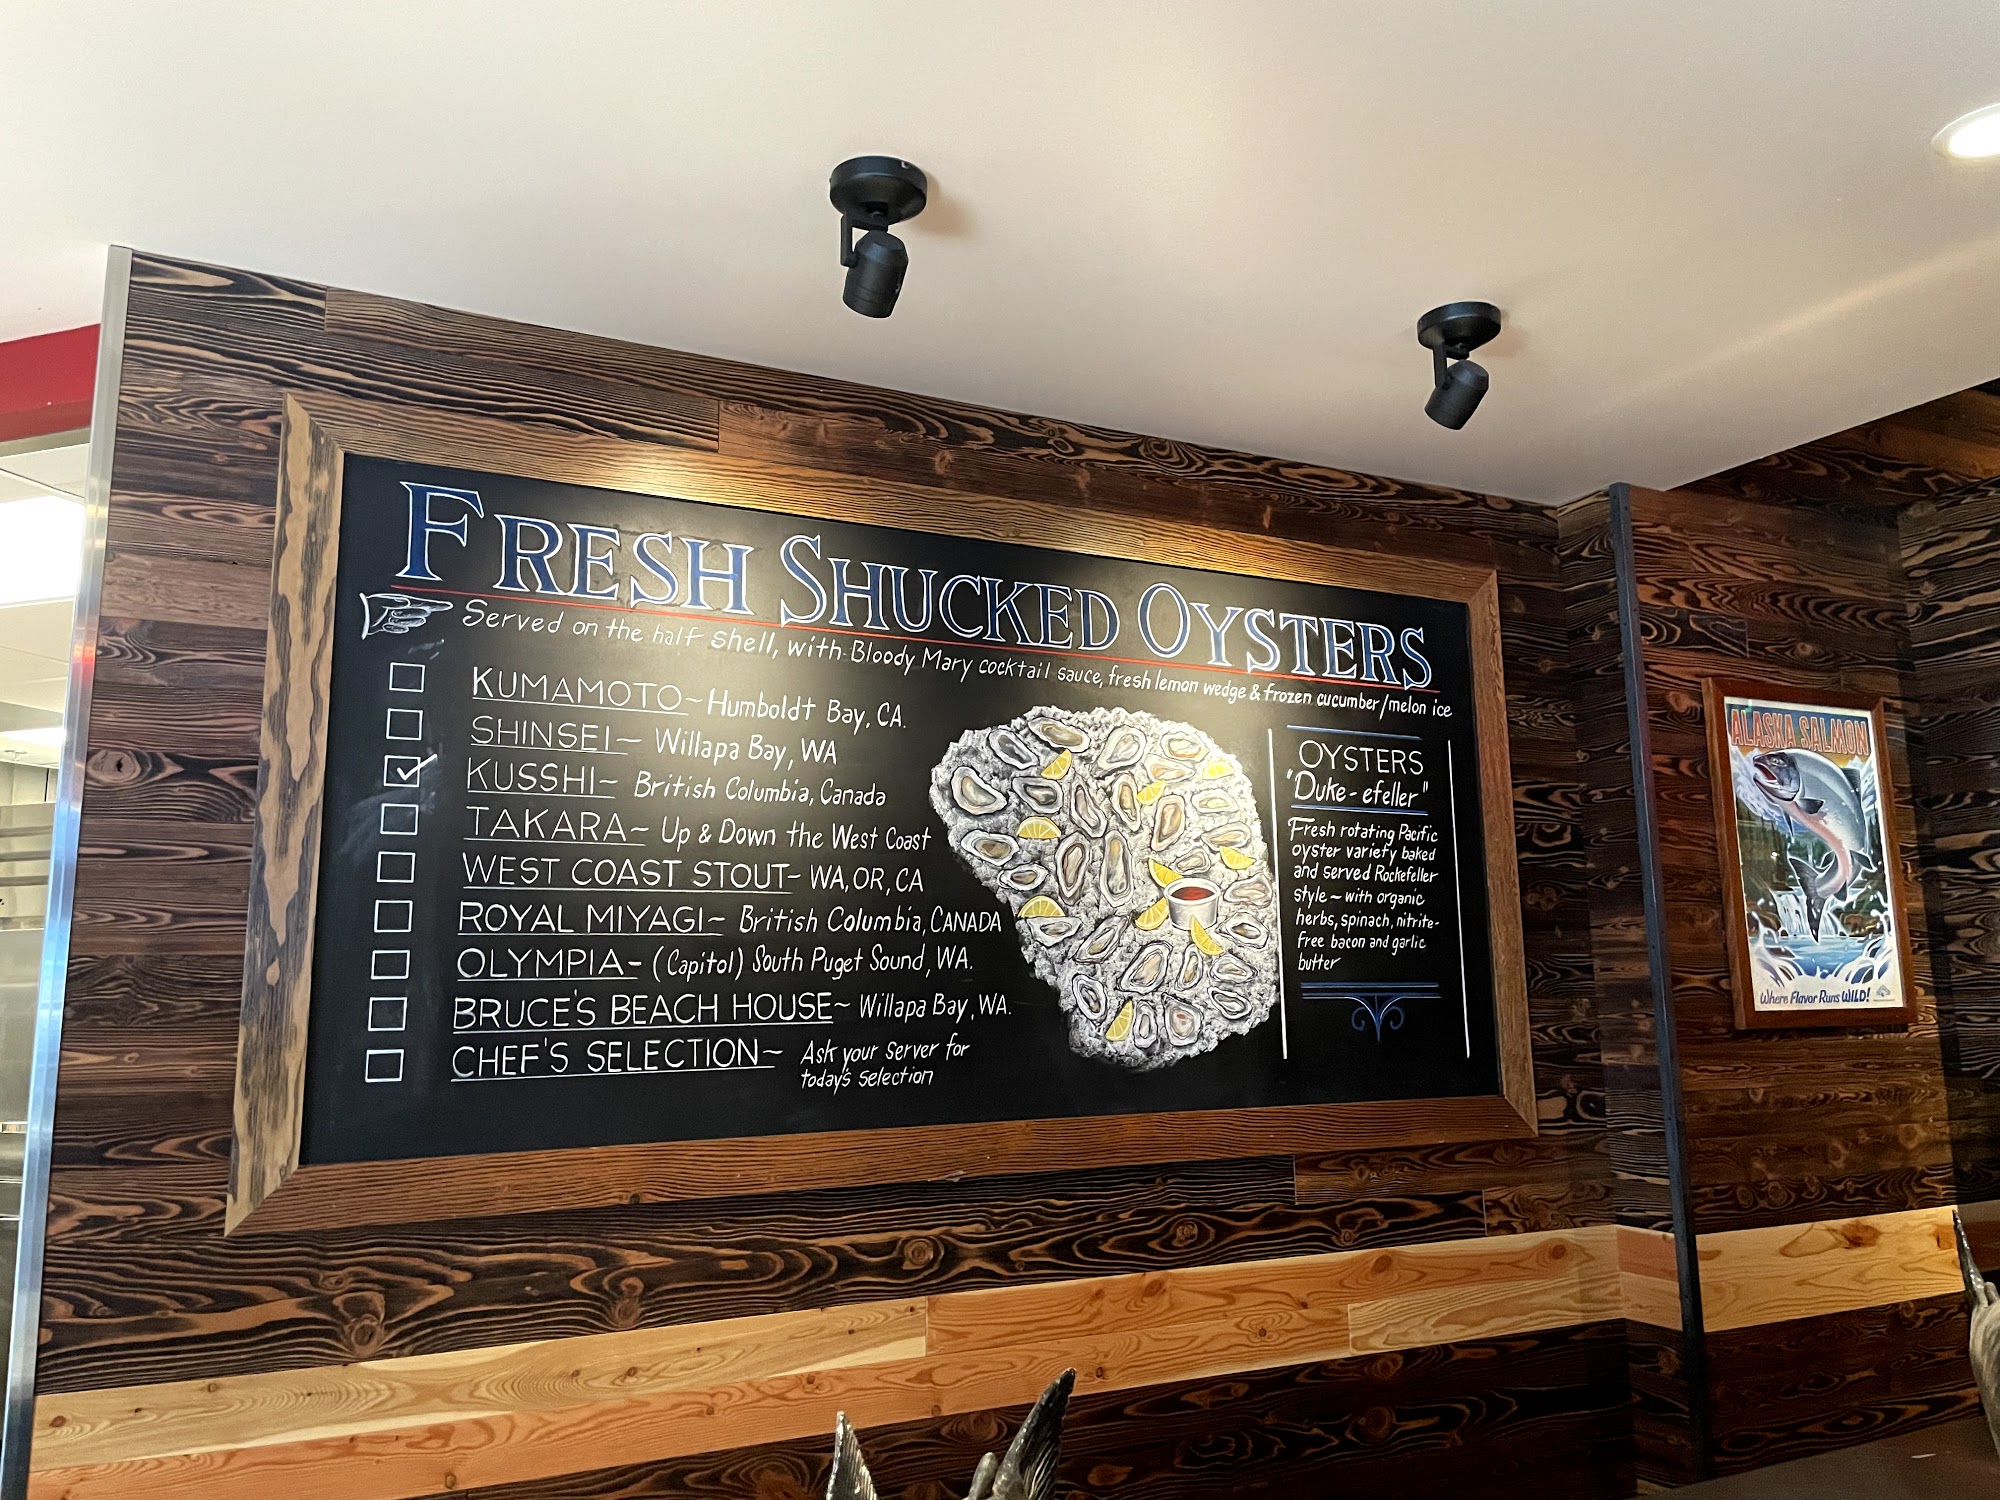 FRESH SHUCKED OYSTERS
Served on the half shell, with Bloody Mary cocktail sauce, fresh lemon wedge & frozen cucumber/melon ice
KUMAMOTO~ Humboldt Bay, CA.
SHINSEI~ Willapa Bay, WA
KUSSHI~ British Columbia, Canada
TAKARA~ Up & Down the West Coast
WEST COAST STOUT~ WA, OR, CA
ROYAL MIYAGI~ British Columbia, CANADA
OLYMPIA~ (Capitol) South Puget Sound, WA.
BRUCE'S BEACH HOUSE~ Willapa Bay, WA.
CHEF'S SELECTION~ Ask your server for
today's selection
OYSTERS
"Duke-efeller"
Fresh rotating Pacific
oyster variety baked
and served Rockefeller
style~ with organic
herbs, spinach, nitrite-
free bacon and garlic
butter
ALASKA SALMON
Where Flavor Runs WILD!